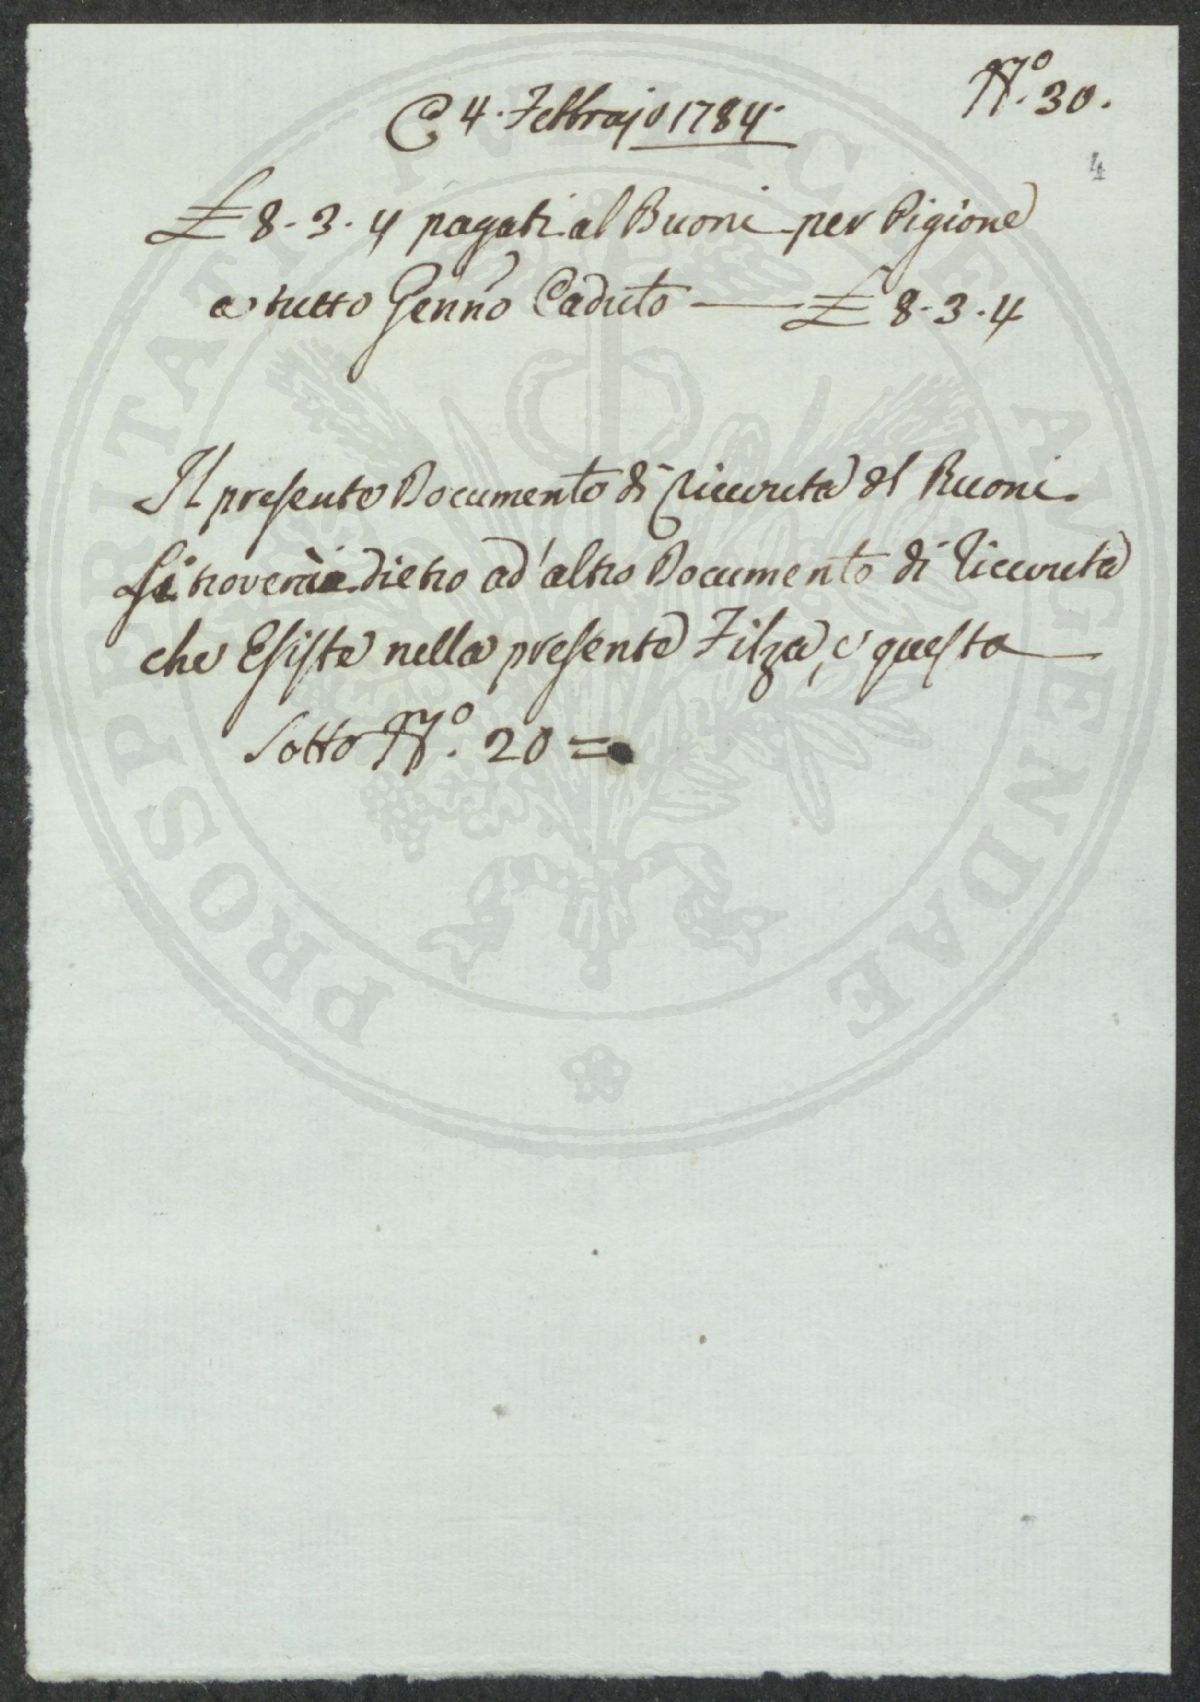 Nº. 30.
A 4. Febbrajo 1784.
4
£ 8-3.4 pagati al Buoni per Pigione
a tutto Genn.o Caduto — £ 8-3.4
Il presente Documento di ricevuta del Buoni
si troverà dietro ad' altro Documento di ricevuta
che Esiste nella presente Filza, e' questo
sotto Nº. 20 =
PROSPERITATI PUBLICAE AUGENDAE